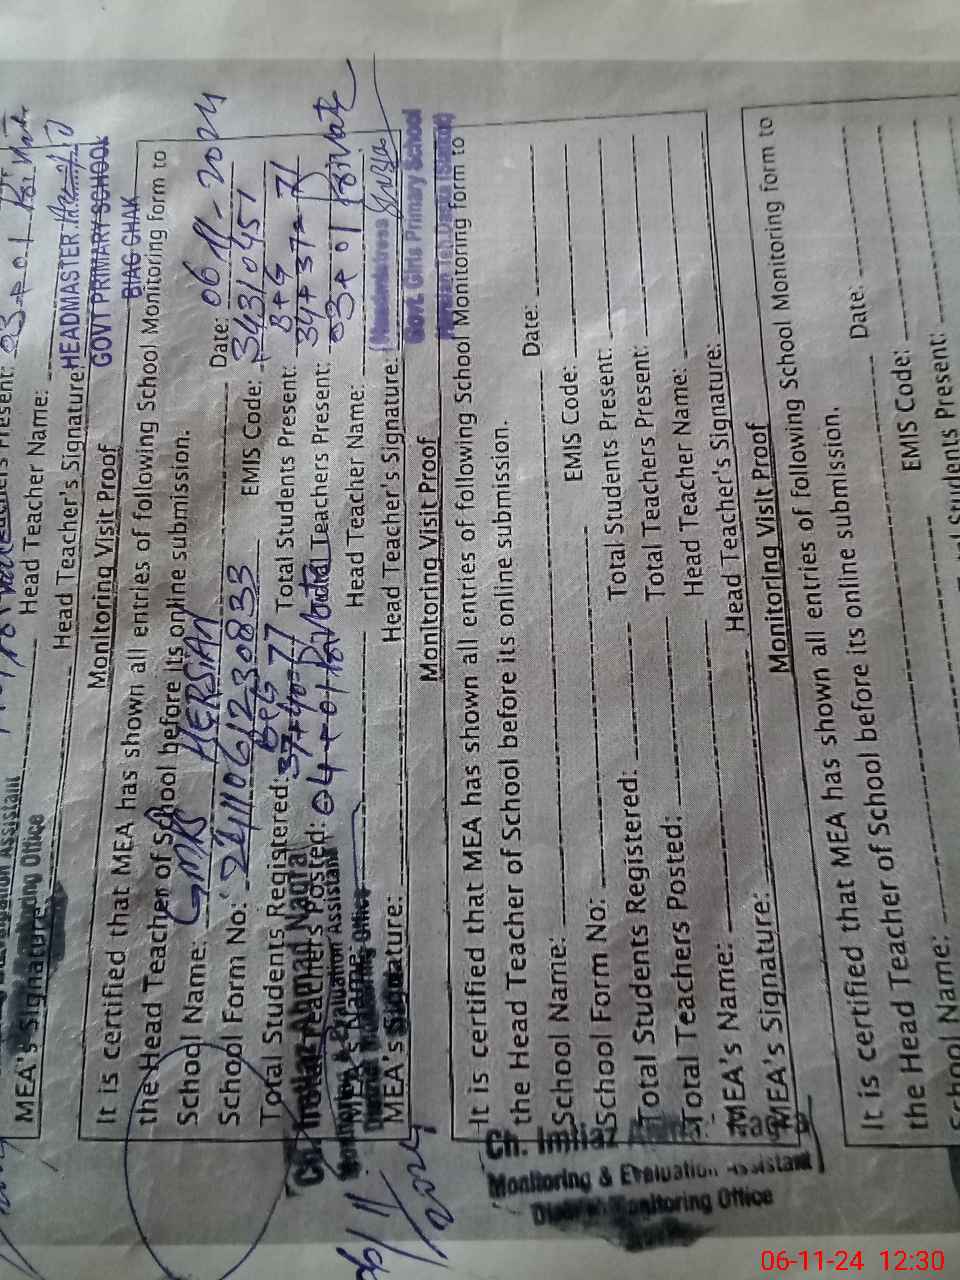 MEA's Signature:
Head Teacher Name:
Head Teacher's Signature: HEADMASTER
GOVT PRIMARY SCHOOL
BIAG CHAK
Monitoring Visit Proof
It is certified that MEA has shown all entries of following School Monitoring form to
the Head Teacher of School before its online submission.
School Name: GMPS HERSIAN Date: 06-11-2024
School Form No: EMIS Code: 34310451
B+G B+G
Total Students Registered: 37+40=77 Total Students Present: 34+37=71
Total Teachers Posted: 04+01 Private Total Teachers Present: 03+01 Private
MEA's Name: Head Teacher Name:
MEA's Signature: Head Teacher's Signature: Headmistress
Govt. Girls Primary School
Ch. Imtiaz Ahmad Nagra
Monitoring & Evaluation Assistant
District Monitoring Office
06/11/2024
Monitoring Visit Proof
It is certified that MEA has shown all entries of following School Monitoring form to
the Head Teacher of School before its online submission.
School Name: Date:
School Form No: EMIS Code:
Total Students Registered: Total Students Present:
Total Teachers Posted: Total Teachers Present:
MEA's Name: Head Teacher Name:
MEA's Signature: Head Teacher's Signature:
Ch. Imtiaz Ahmad Nagra
Monitoring & Evaluation Assistant
District Monitoring Office
Monitoring Visit Proof
It is certified that MEA has shown all entries of following School Monitoring form to
the Head Teacher of School before its online submission.
School Name: Date:
EMIS Code:
Total Students Present:
06-11-24 12:30